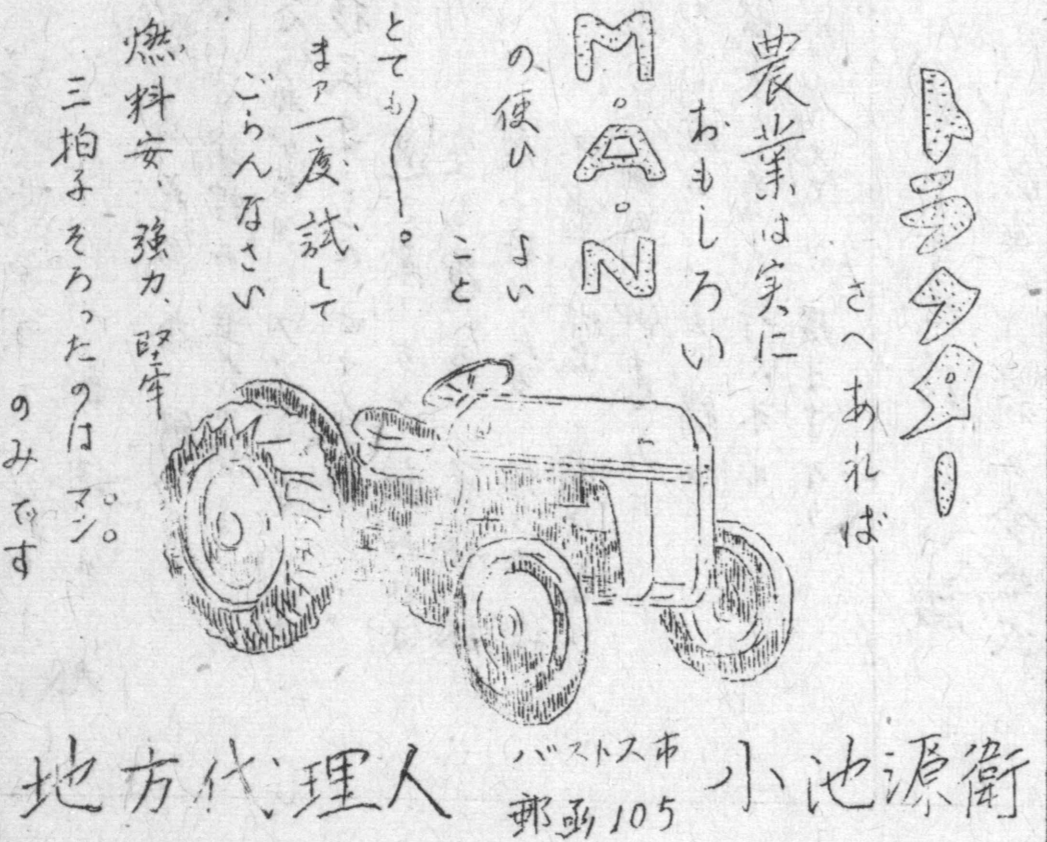 トラクター
さへあれば
農業は実に
おもしろい
M.A.N
の、使ひよい
こと
とても〱。
まァ一度試して
ごらんなさい
燃料安、強力、堅牢
三拍子そろったのはマン。
のみです
地方代理人
バストス市
郵函105
小池源衛